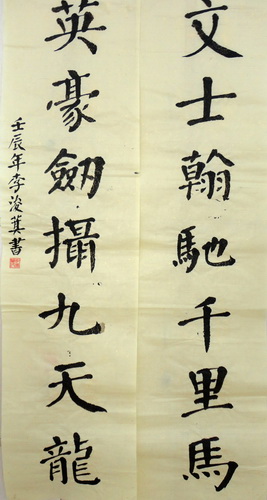 文士翰馳千里馬
英豪劒攝九天龍
壬辰年李浚萁書